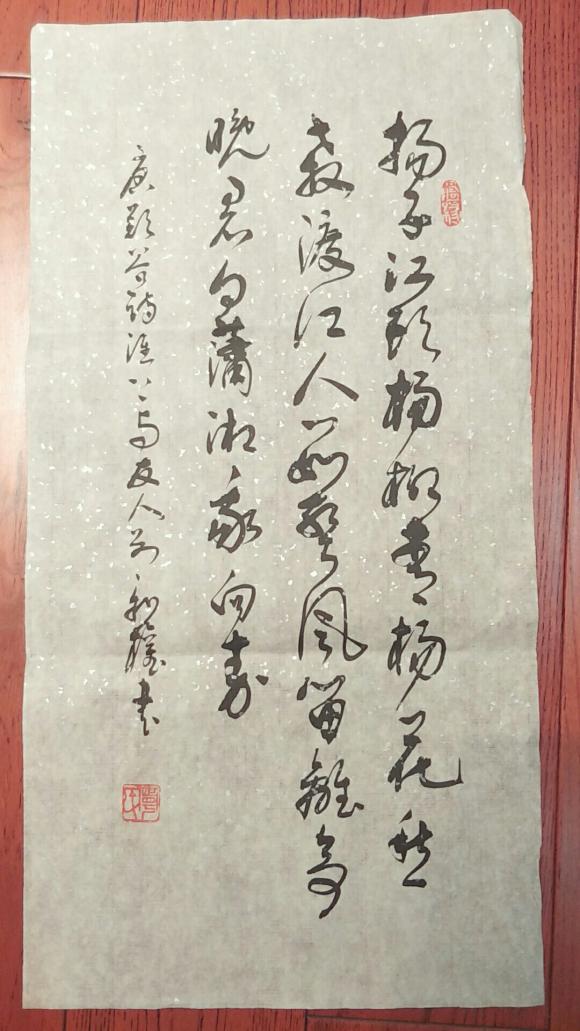 揚子江頭楊柳春楊花愁
殺渡江人數聲風笛離亭
晚君向瀟湘我向秦
唐鄭谷詩淮上與友人別 書